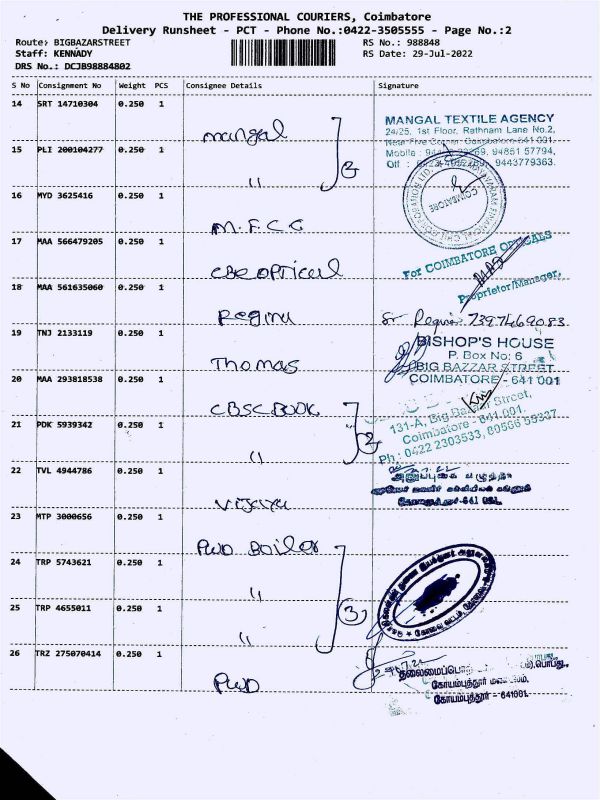 THE PROFESSIONAL COURIERS, Coimbatore
Delivery Runsheet - PCT - Phone No.:0422-3505555 - Page No.:2
Route: BIGBAZARSTREET
RS No.: 988848
Staff: KENNADY
RS Date: 29-Jul-2022
DRS No.: DCJB98884802
S No Consignment No Weight PCS Consignee Details Signature
14 SRT 14710304 0.250 1
mangal
MANGAL TEXTILE AGENCY
24/25, 1st Floor, Rathnam Lane No.2,
15 PLI 200104277 0.250 1
"
2
16 MYD 3625416 0.250 1
M.F.C.C
COIMBATORE
17 MAA 566479205 0.250 1
CBE OPTICAL
For COIMBATORE OPTICALS
Proprietor/Manager,
18 MAA 561635060 0.250 1
Regina
Sr Regina 7397469083
19 TNJ 2133119 0.250 1
Thomas
BISHOP'S HOUSE
P. Box No: 6
BIG BAZZAR STREET
COIMBATORE - 641 001
20 MAA 293818538 0.250 1
CBSC BOOK
131-A, Big Bazzar Street,
Coimbatore - 641 001.
21 PDK 5939342 0.250 1
"
2
Ph : 0422 2303533,
22 TVL 4944786 0.250 1
Vijaya
23 MTP 3000656 0.250 1
PWD Boiler
24 TRP 5743621 0.250 1
"
25 TRP 4655011 0.250 1
"
3
26 TRZ 275070414 0.250 1
PWD
கோயம்புத்தூர் - 641001.